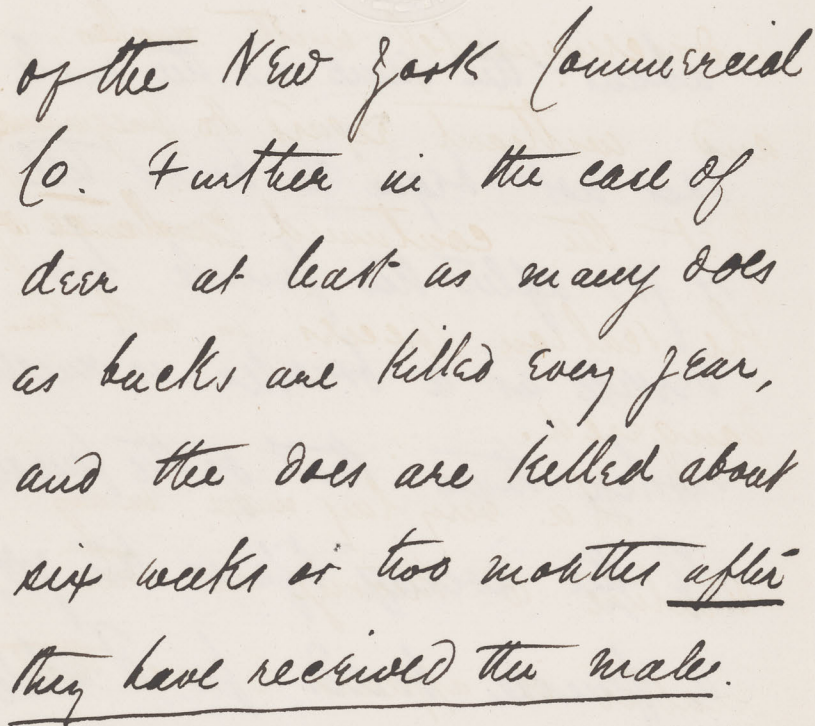 of the New York Commercial
Co. Further in the case of
deer at least as many does
as bucks are killed every year,
and the does are killed about
six weeks or two months after
they have received the male.